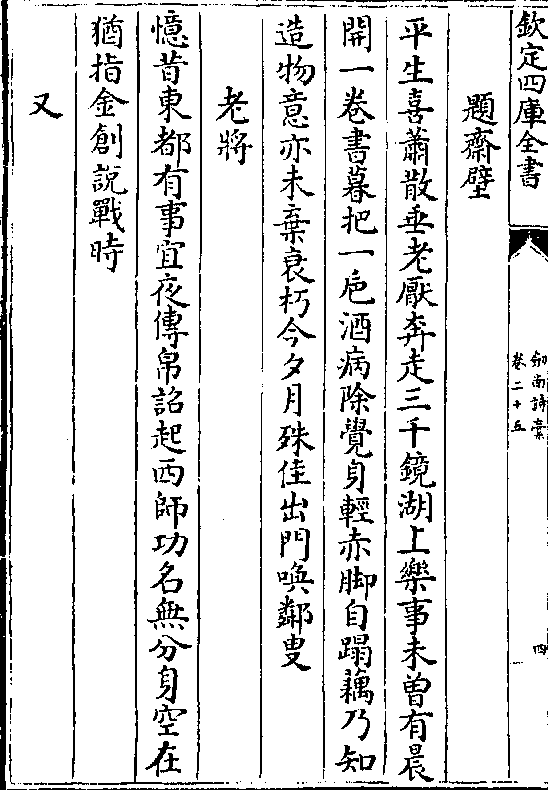 欽定四庫全書
劒南詩稾
卷二十五
四
題齋壁
平生喜蕭散垂老厭奔走三千鏡湖上樂事未曾有晨
開一卷書暮把一巵酒病除覺身輕赤脚自蹋藕乃知
造物意亦未棄衰朽今夕月殊佳出門喚鄰叟
老將
憶昔東都有事宜夜傳帛詔起西師功名無分身空在
猶指金創說戰時
又